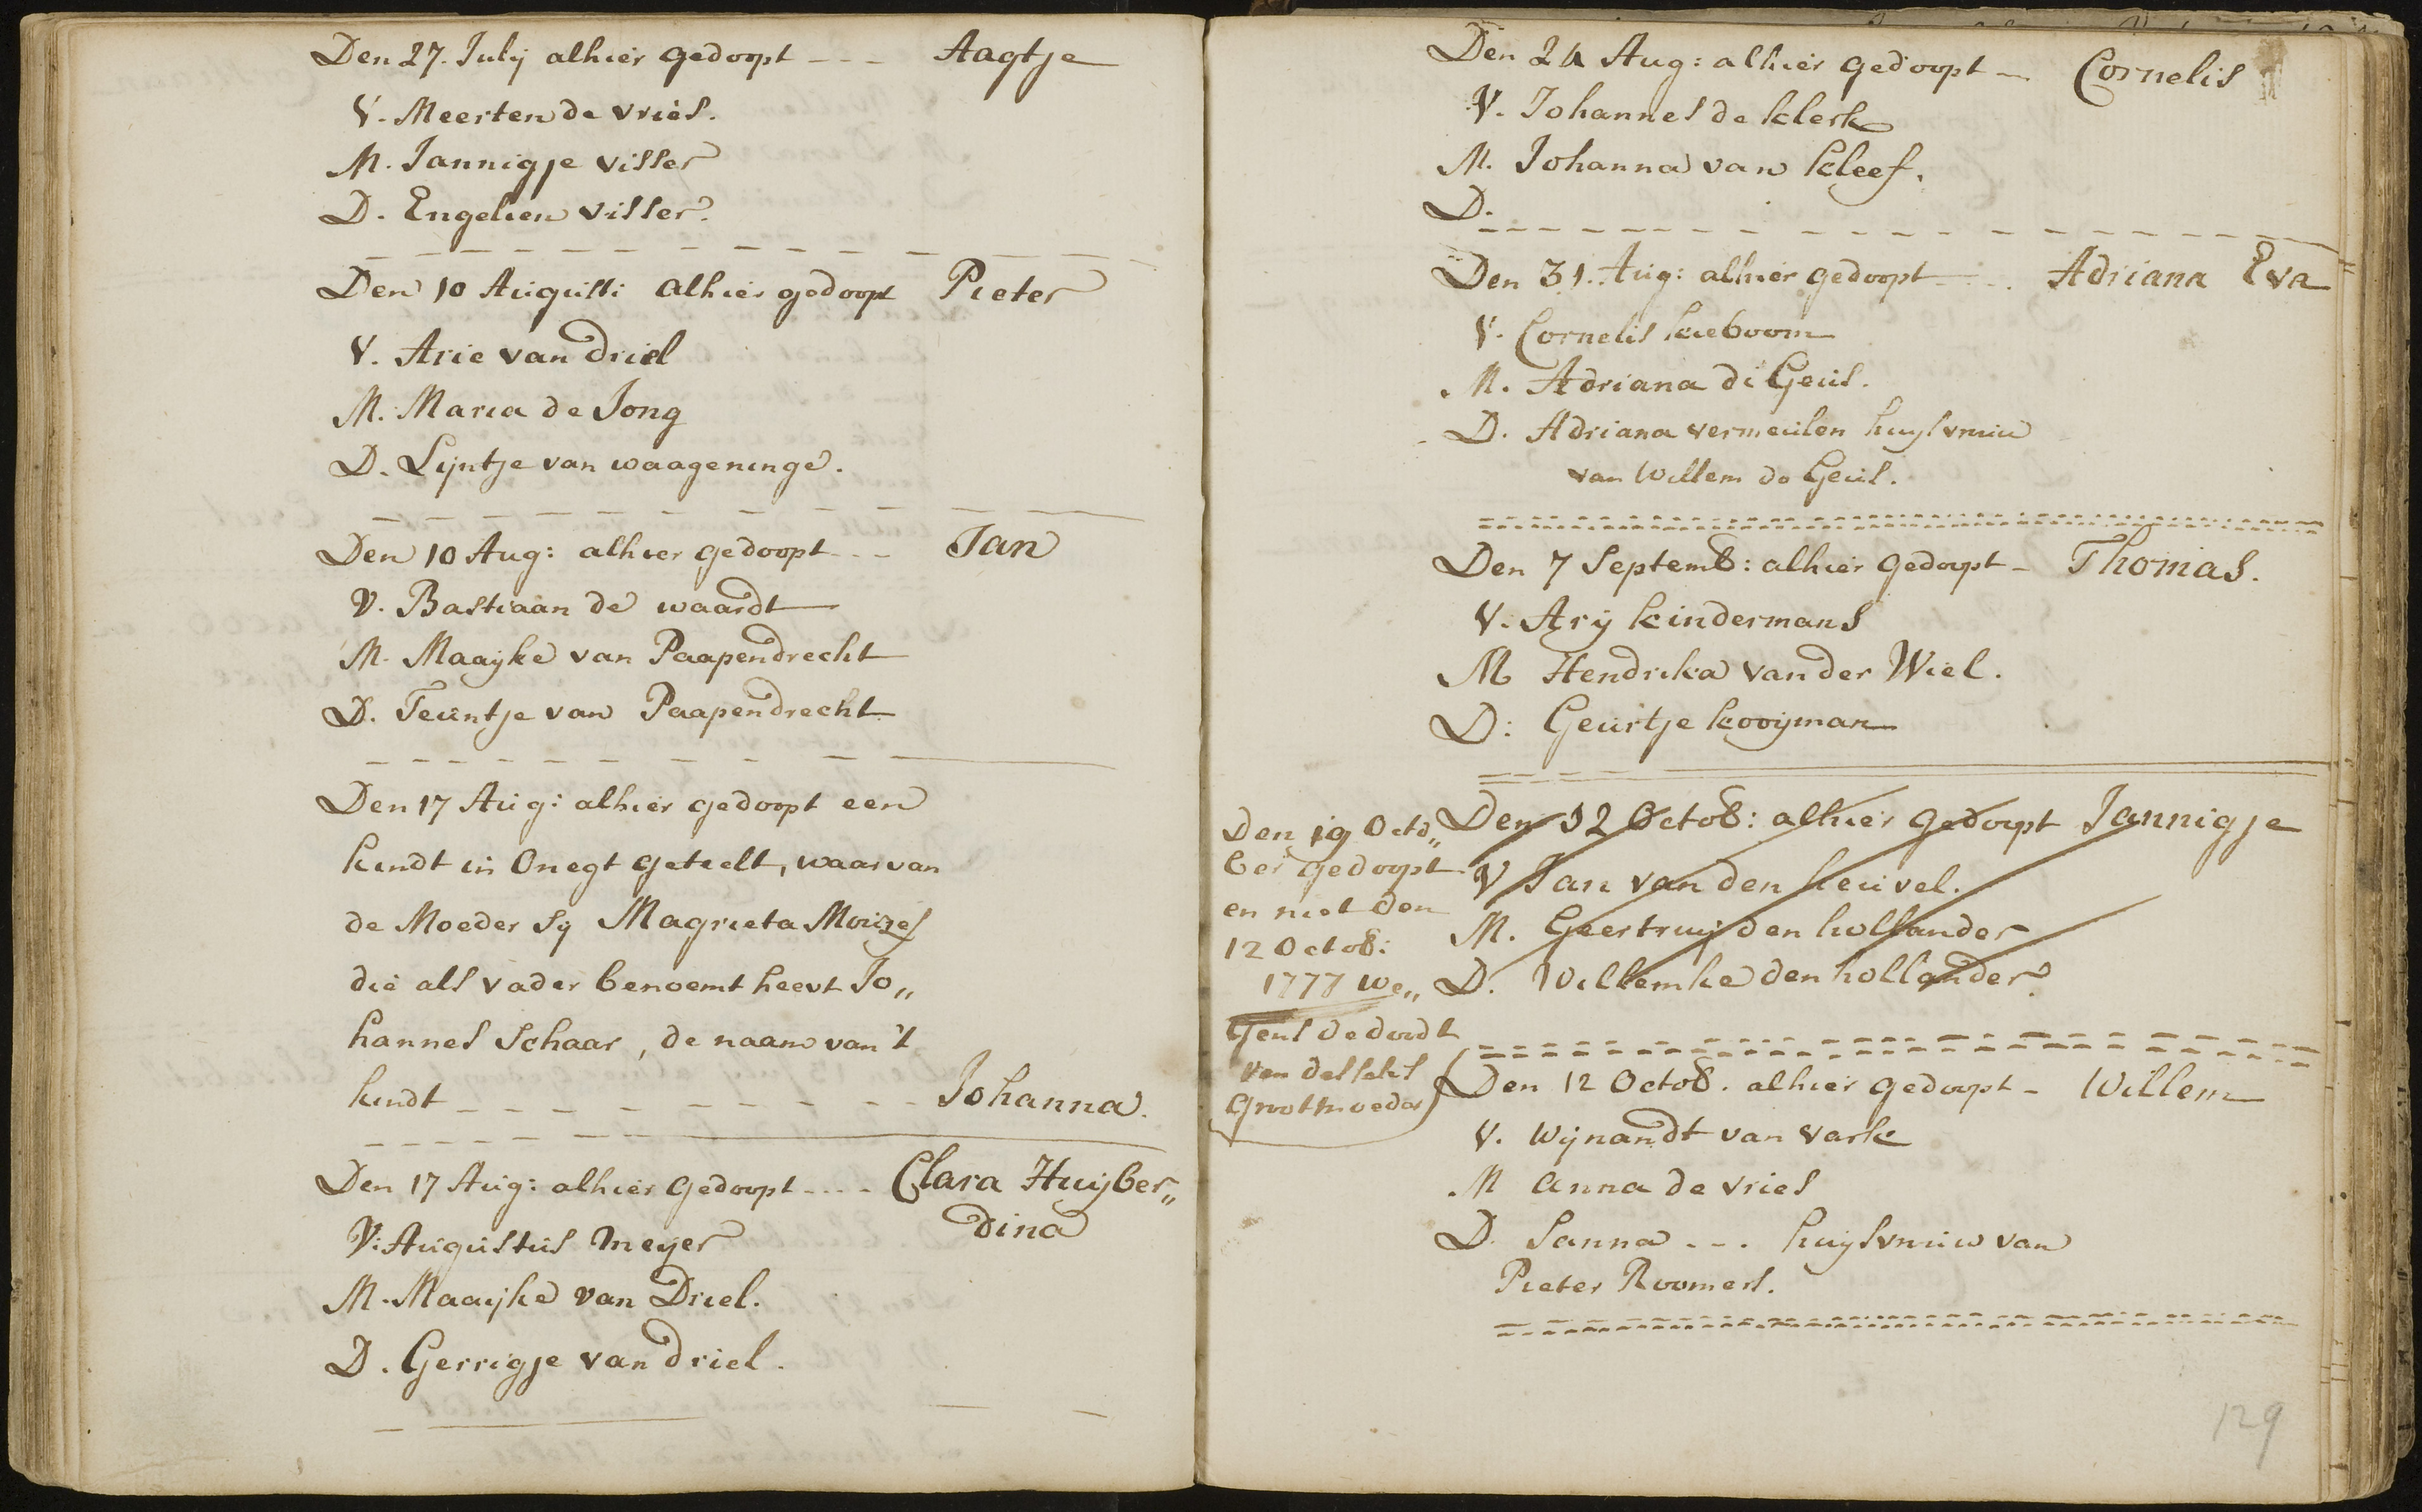 Den 27. July alhier gedoopt --- Aagtje
V. Meerten de vries.
M. Jannigje visser
D. Engelien visser.
Den 10 Augusti alhier gedoopt Pieter
V. Arie van driel
M. Maria de Jong
D. Lijntje van waageninge.
Den 10 Aug: alhier gedoopt --- Jan
V. Bastiaan de waardt
M. Maayke van Paapendrecht
D. Teuntje van Paapendrecht
Den 17 Aug: alhier gedoopt een
kindt in Onegt geteelt, waar van
de Moeder sy Magrieta Moizes
die als vader benoemt heevt Jo„
hannes Schaar, de naam van 't
kindt --------- Johanna.
Den 17 Aug: alhier gedoopt ---- Clara Huyber„
dina
V: Augustus meyer
M. Maayke van Driel.
D. Gerrigje van driel.
Den 24 Aug: alhier gedoopt - Cornelis
V. Johannes de klerk
M. Johanna van kleef.
D.
Den 31. Aug: alhier gedoopt --- Adriana Eva
V. Cornelis kieboom
M. Adriana de Geus.
D. Adriana vermeulen huysvrouw
van Willem de Geus.
Den 7 Septemb: alhier gedoopt - Thomas.
V. Ary kindermans
M Hendrika van der Wiel.
D: Geurtje kooyman
Den 12 Octob: alhier gedoopt Jannigje
V Jan van den heuvel.
M. Geertruy den hollander
D. Willemke den hollander
Den 19 Octo„
ber gedoopt
en niet den
12 Octob:
1777 we„
gens de dodt
van desselvs
Grootmoeder
Den 12 Octob. alhier gedoopt - Willem
V. Wynandt van vark
M anna de vries
D. Sanna --- huysvrouw van
Pieter Roomers.
129